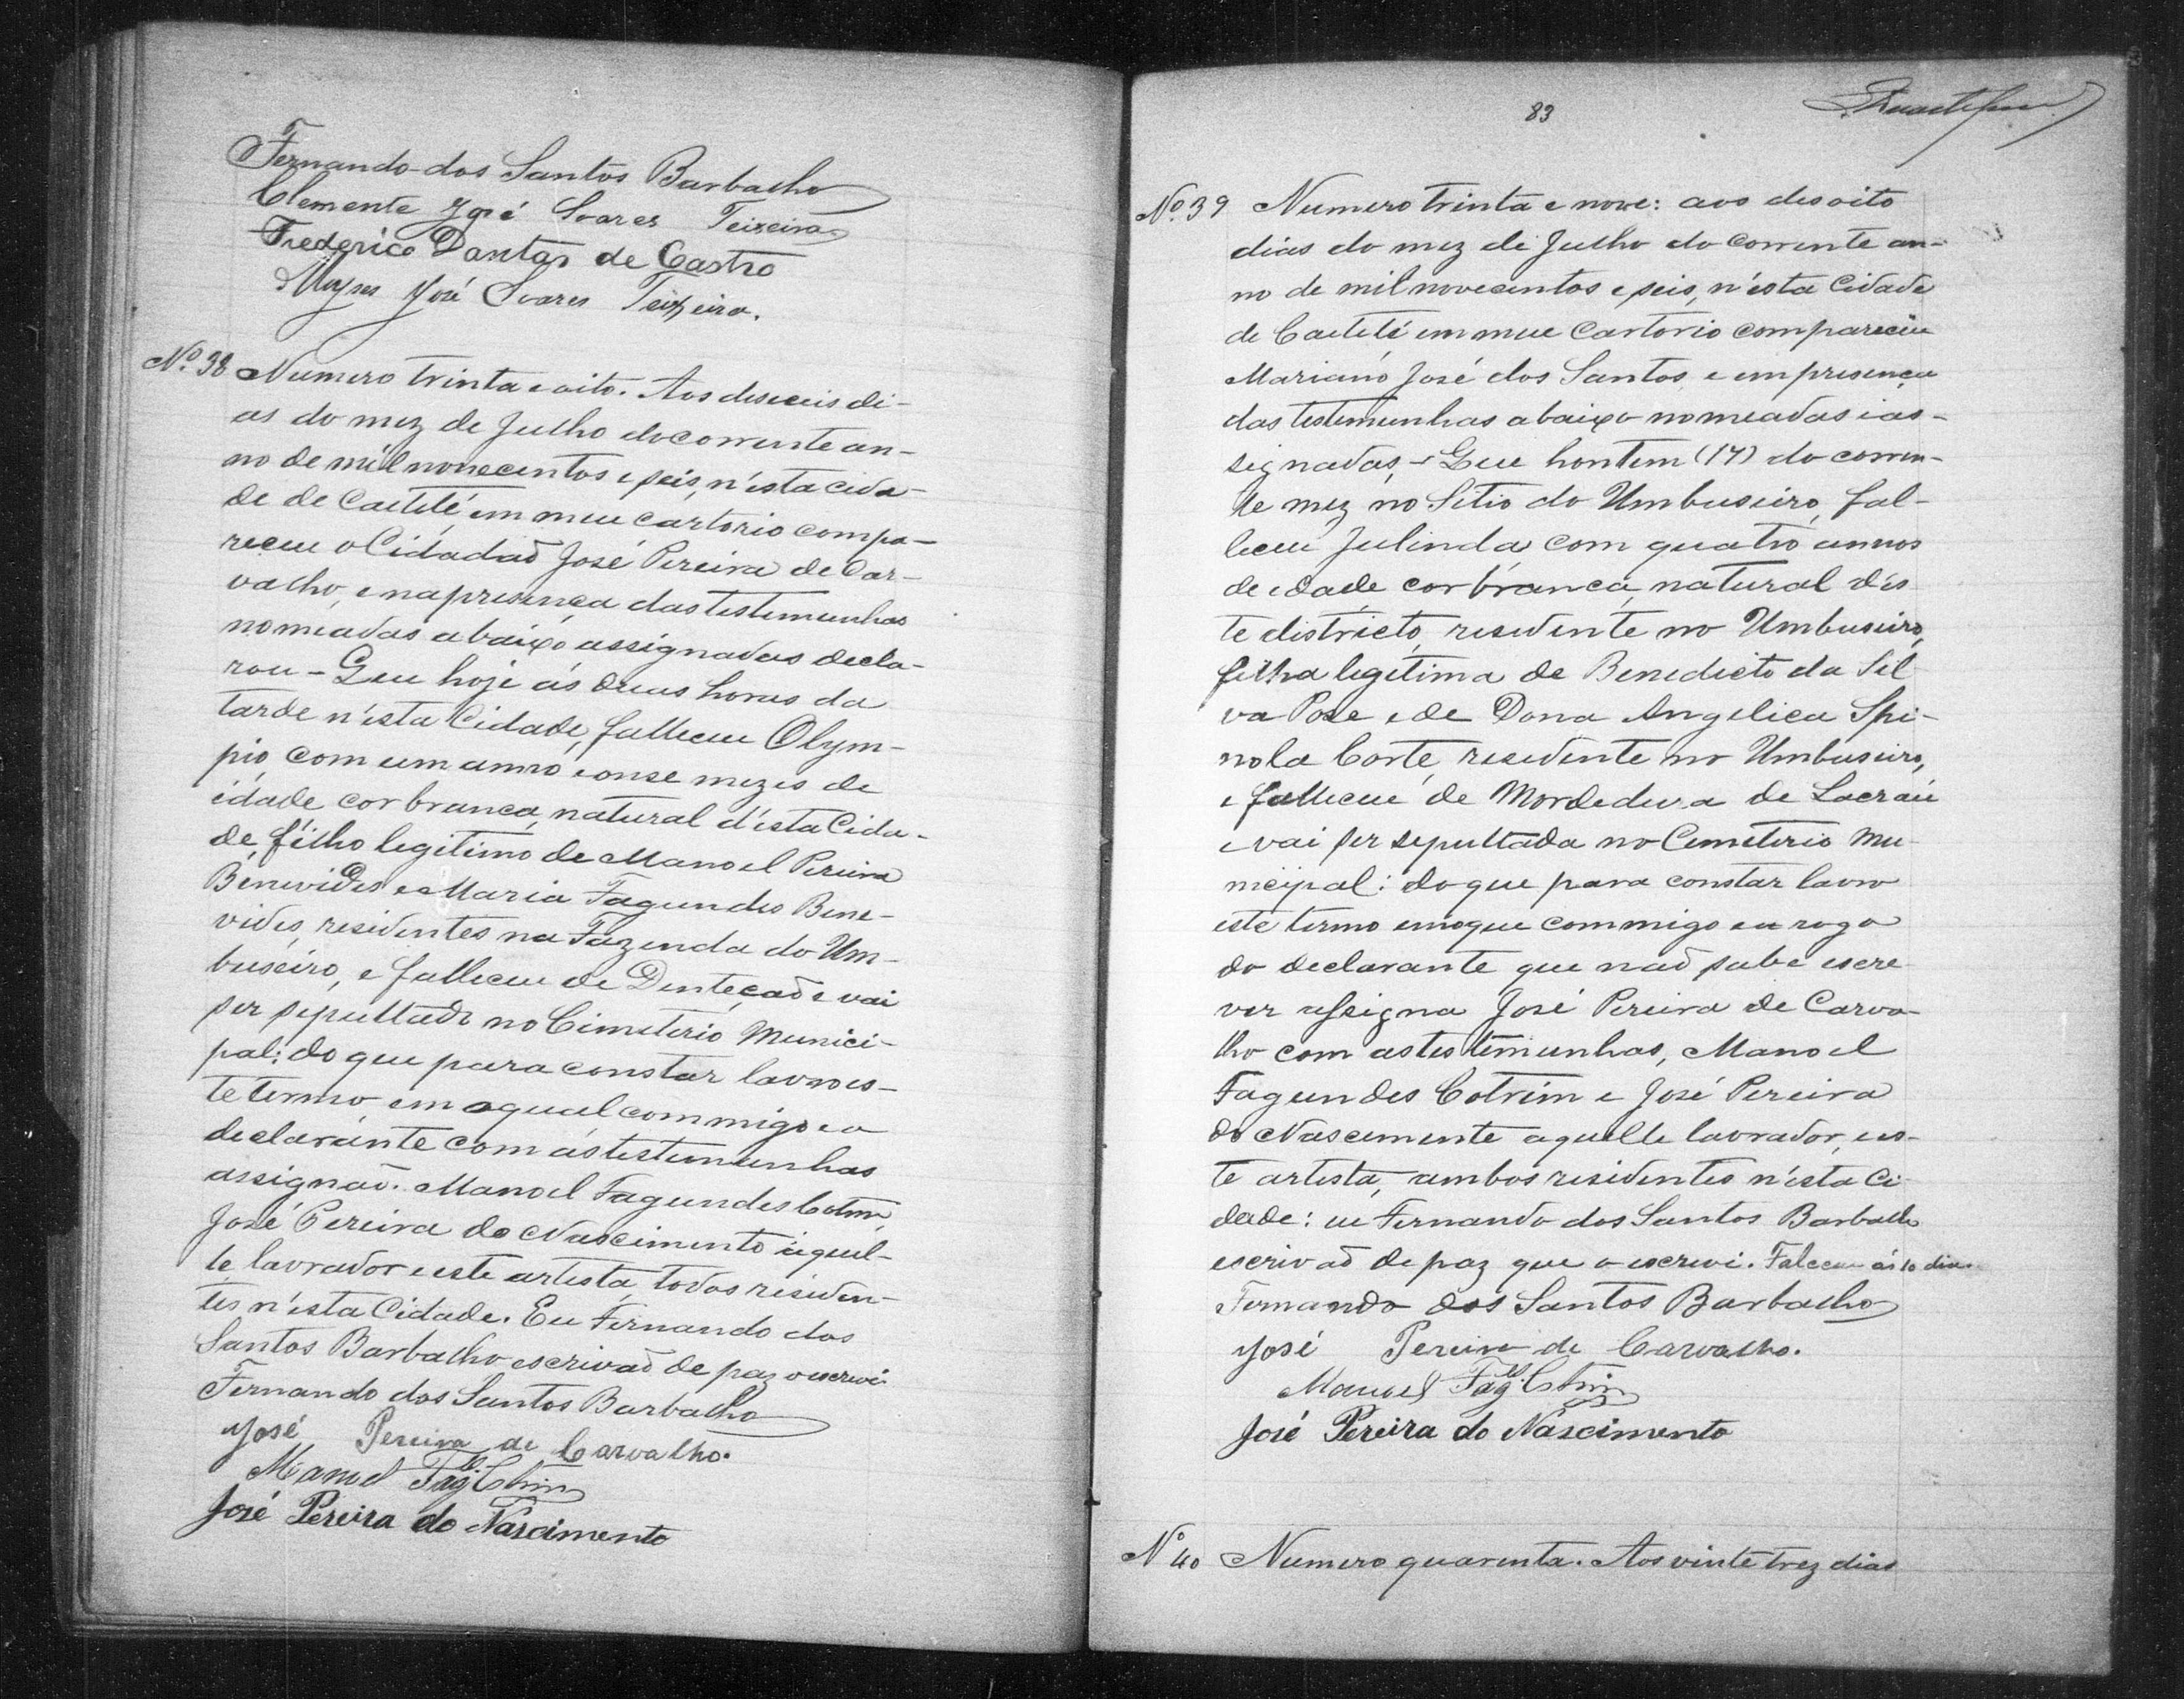 Fernando dos Santos Barbalho
Clemente José Soares Teixeira
Frederico Dantas de Castro
Moyses José Soares Teixeira.
Nº 38 Numero trinta e oito. Aos deseceis di-
as do mez de Julho do corrente an-
no de mil novecentos e seis, n'esta cida-
de de Caetité em meu cartorio compa-
receu o Cidadaõ José Pereira de Car-
valho, e na presença das testemunhas
nomeadas abaixo assignadas decla-
rou - Que hoje ás duas horas da
tarde n'esta Cidade, falleceu Olym-
pio com um anno e onse mezes de
idade cor branca, natural d'esta Cida-
de, filho legitimo de Manoel Pereira
Benevides e Maria Fagundes Bene-
vides, residentes na Fazenda do Um-
buseiro, e falleceu de Denteçaõ e vai
ser sepultado no Cimeterio Munici-
pal: do que para constar lavro es-
te termo, em o qual commigo e o
declarante com as testemunhas
assignaõ. Manoel Fagundes Cotrim,
José Pereira do Nascimento aquel-
le lavrador e este artista, todos residen-
tes n'esta Cidade. Eu Fernando dos
Santos Barbalho escrivaõ de paz o escrevi
Fernando dos Santos Barbalho
José Pereira de Carvalho.
Manoel Fag.des Cotrim
José Pereira do Nascimento
83
Nº 39 Numero trinta e nove: aos desoito
dias do mez de Julho do corrente an-
no de mil novecentos e seis, n'esta Cidade
de Caetité em meu Cartorio compareceu
Mariano José dos Santos e em presença
das testemunhas abaixo nomeadas e as-
signadas, - Que hontem (17) do corren-
te mez no Sitio do Umbuseiro, fal-
leceu Julinda com quatro annos
de edade cor branca, natural d'es
te districto, residente no Umbuseiro,
filha legitima de Benedicto da Sil
va Pose e de Dona Angelica Spi-
nola Corte, residente no Umbuseiro,
e falleceu de Mordedura de Lacrau
e vai ser sepultada no Cemeterio Mu-
nicipal: do que para constar lavro
este termo em o que commigo e a rogo
do declarante que naõ sabe escre
ver assigna José Pereira de Carva-
lho com as testemunhas, Manoel
Fagundes Cotrim e José Pereira
do Nascimento aquelle lavrador, e es-
te artista, ambos residentes n'esta Ci
dade: eu Fernando dos Santos Barbalho
escrivaõ de paz que o escrevi. Faleceu ás 10
Fernando dos Santos Barbalho
José Pereira de Carvalho.
Manoel Fag.des Cotrim
José Pereira do Nascimento
Nº 40 Numero quarenta. Aos vinte trez dias